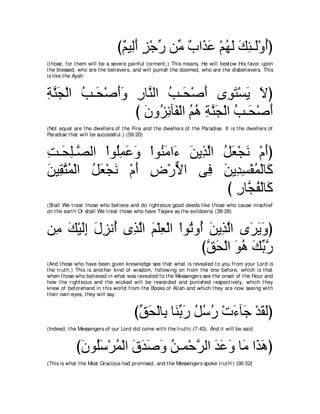 (أُوْلَـئِكَ لَهُمْ عَذَابٌ مِّن رِّجْزٍ أَلِيمٌ)
(those, for them will be a severe painful torment.) This means, He will bestow His favor upon
the blessed, who are the believers, and will punish the doomed, who are the disbelievers. This
is like the Ayah:
(لاَ يَسْتَوِى أَصْحَـبُ النَّارِ وَأَصْحَـبُ الْجَنَّةِ
أَصْحَـبُ الْجَنَّةِ هُمُ الْفَآئِزُونَ )
(Not equal are the dwellers of the Fire and the dwellers of the Paradise. It is the dwellers of
Paradise that will be successful.) (59:20)
(أَمْ نَجْعَلُ الَّذِينَ ءَامَنُواْ وَعَمِلُواْ الصَّـلِحَـتِ
كَالْمُفْسِدِينَ فِى الاٌّرْضِ أَمْ نَجْعَلُ الْمُتَّقِينَ
كَالْفُجَّارِ )
(Shall We treat those who believe and do righteous good deeds like those who cause mischief
on the earth Or shall We treat those who have Taqwa as the evildoers) (38:28)
(وَيَرَى الَّذِينَ أُوتُواْ الْعِلْمَ الَّذِى أُنزِلَ إِلَيْكَ مِن
رَّبِّكَ هُوَ الْحَقَّ)
(And those who have been given knowledge see that what is revealed to you from your Lord is
the truth,) This is another kind of wisdom, following on from the one before, which is that
when those who believed in what was revealed to the Messengers see the onset of the Hour and
how the righteous and the wicked will be rewarded and punished respectively, which they
knew of beforehand in this world from the Books of Allah and which they are now seeing with
their own eyes, they will say:
(لَقَدْ جَآءَتْ رُسُلُ رَبِّنَا بِالْحَقِّ)
(Indeed, the Messengers of our Lord did come with the truth) (7:43). And it will be said:
(هَذَا مَا وَعَدَ الرَّحْمَـنُ وَصَدَقَ الْمُرْسَلُونَ)
(This is what the Most Gracious had promised, and the Messengers spoke truth!) (36:52)